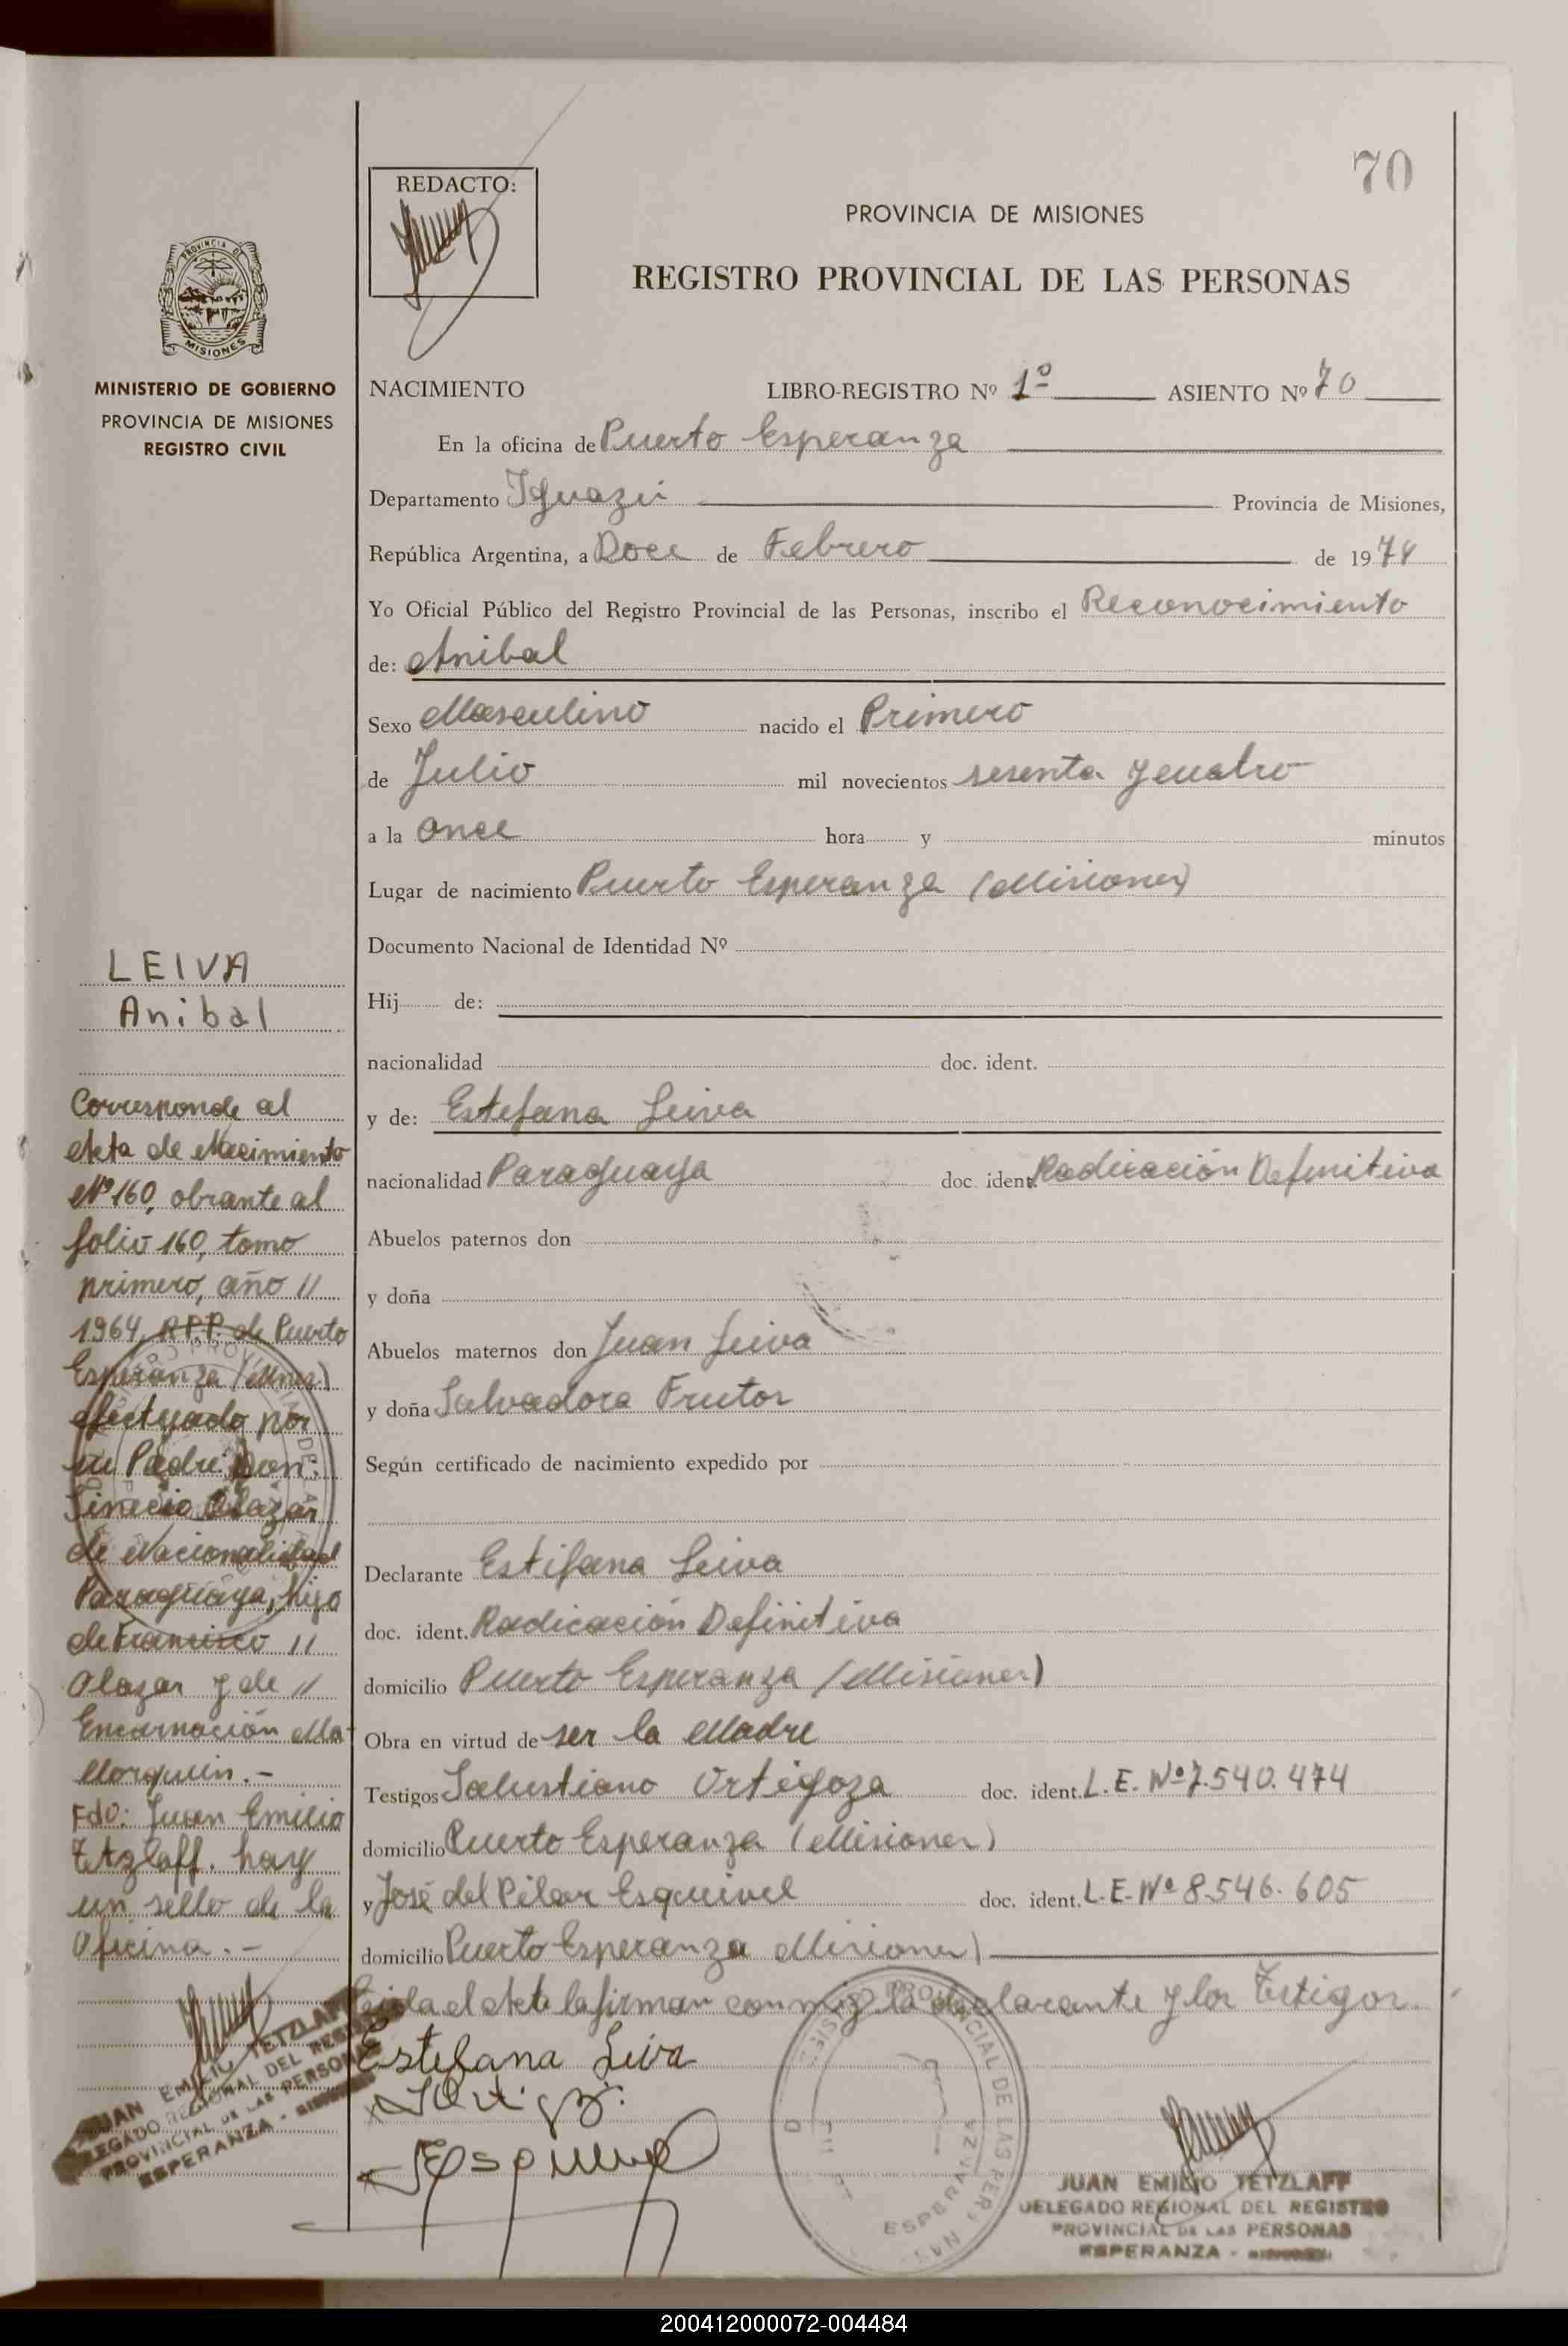 70
REDACTO:
PROVINCIA DE MISIONES
REGISTRO PROVINCIAL DE LAS PERSONAS
PROVINCIA DE
MISIONES
MINISTERIO DE GOBIERNO
PROVINCIA DE MISIONES
REGISTRO CIVIL
NACIMIENTO LIBRO-REGISTRO Nº 1º ASIENTO Nº 70
En la oficina de Puerto Esperanza
Departamento Iguazú Provincia de Misiones,
República Argentina, a Doce de Febrero de 1974
Yo Oficial Público del Registro Provincial de las Personas, inscribo el Reconocimiento
de: Anibal
Sexo Masculino nacido el Primero
de Julio mil novecientos sesenta y cuatro
a la once hora y minutos
Lugar de nacimiento Puerto Esperanza (Misiones)
Documento Nacional de Identidad Nº
Hij de:
nacionalidad doc. ident.
y de: Estefana Leiva
nacionalidad Paraguaya doc. ident. Radicación Definitiva
Abuelos paternos don
y doña
Abuelos maternos don Juan Leiva
y doña Salvadora Frutos
Según certificado de nacimiento expedido por
Declarante Estifana Leiva
doc. ident. Radicación Definitiva
domicilio Puerto Esperanza (Misiones)
Obra en virtud de ser la Madre
Testigos Salustiano Ortigoza doc. ident. L.E. Nº 7.540.474
domicilio Puerto Esperanza (Misiones)
y José del Pilar Esquivel doc. ident. L.E. Nº 8.546.605
domicilio Puerto Esperanza Misiones)
Leida el Acta la firman conmigo la declarante y los Testigos.
Estefana Leiva
LEIVA
Anibal
Corresponde al
Acta de Nacimiento
Nº 160, obrante al
folio 160, tomo
primero, año //
1964, R.P.P. de Puerto
Esperanza (Mnes)
efectuado por
su Padre: Don:
Sinecio Olazar
de Nacionalidad
Paraguaya, hijo
de Francisco //
Olazar y de //
Encarnación Ma-
llorquin.-
Fdo: Juan Emilio
Tetzlaff. hay
un sello de la
Oficina.-
JUAN EMILIO TETZLAFF
DELEGADO REGIONAL DEL REGISTRO
PROVINCIAL DE LAS PERSONAS
ESPERANZA - MISIONES
REGISTRO PROVINCIAL DE LAS PERSONAS
ESPERANZA
JUAN EMILIO TETZLAFF
DELEGADO REGIONAL DEL REGISTRO
PROVINCIAL DE LAS PERSONAS
ESPERANZA - MISIONES
200412000072-004484